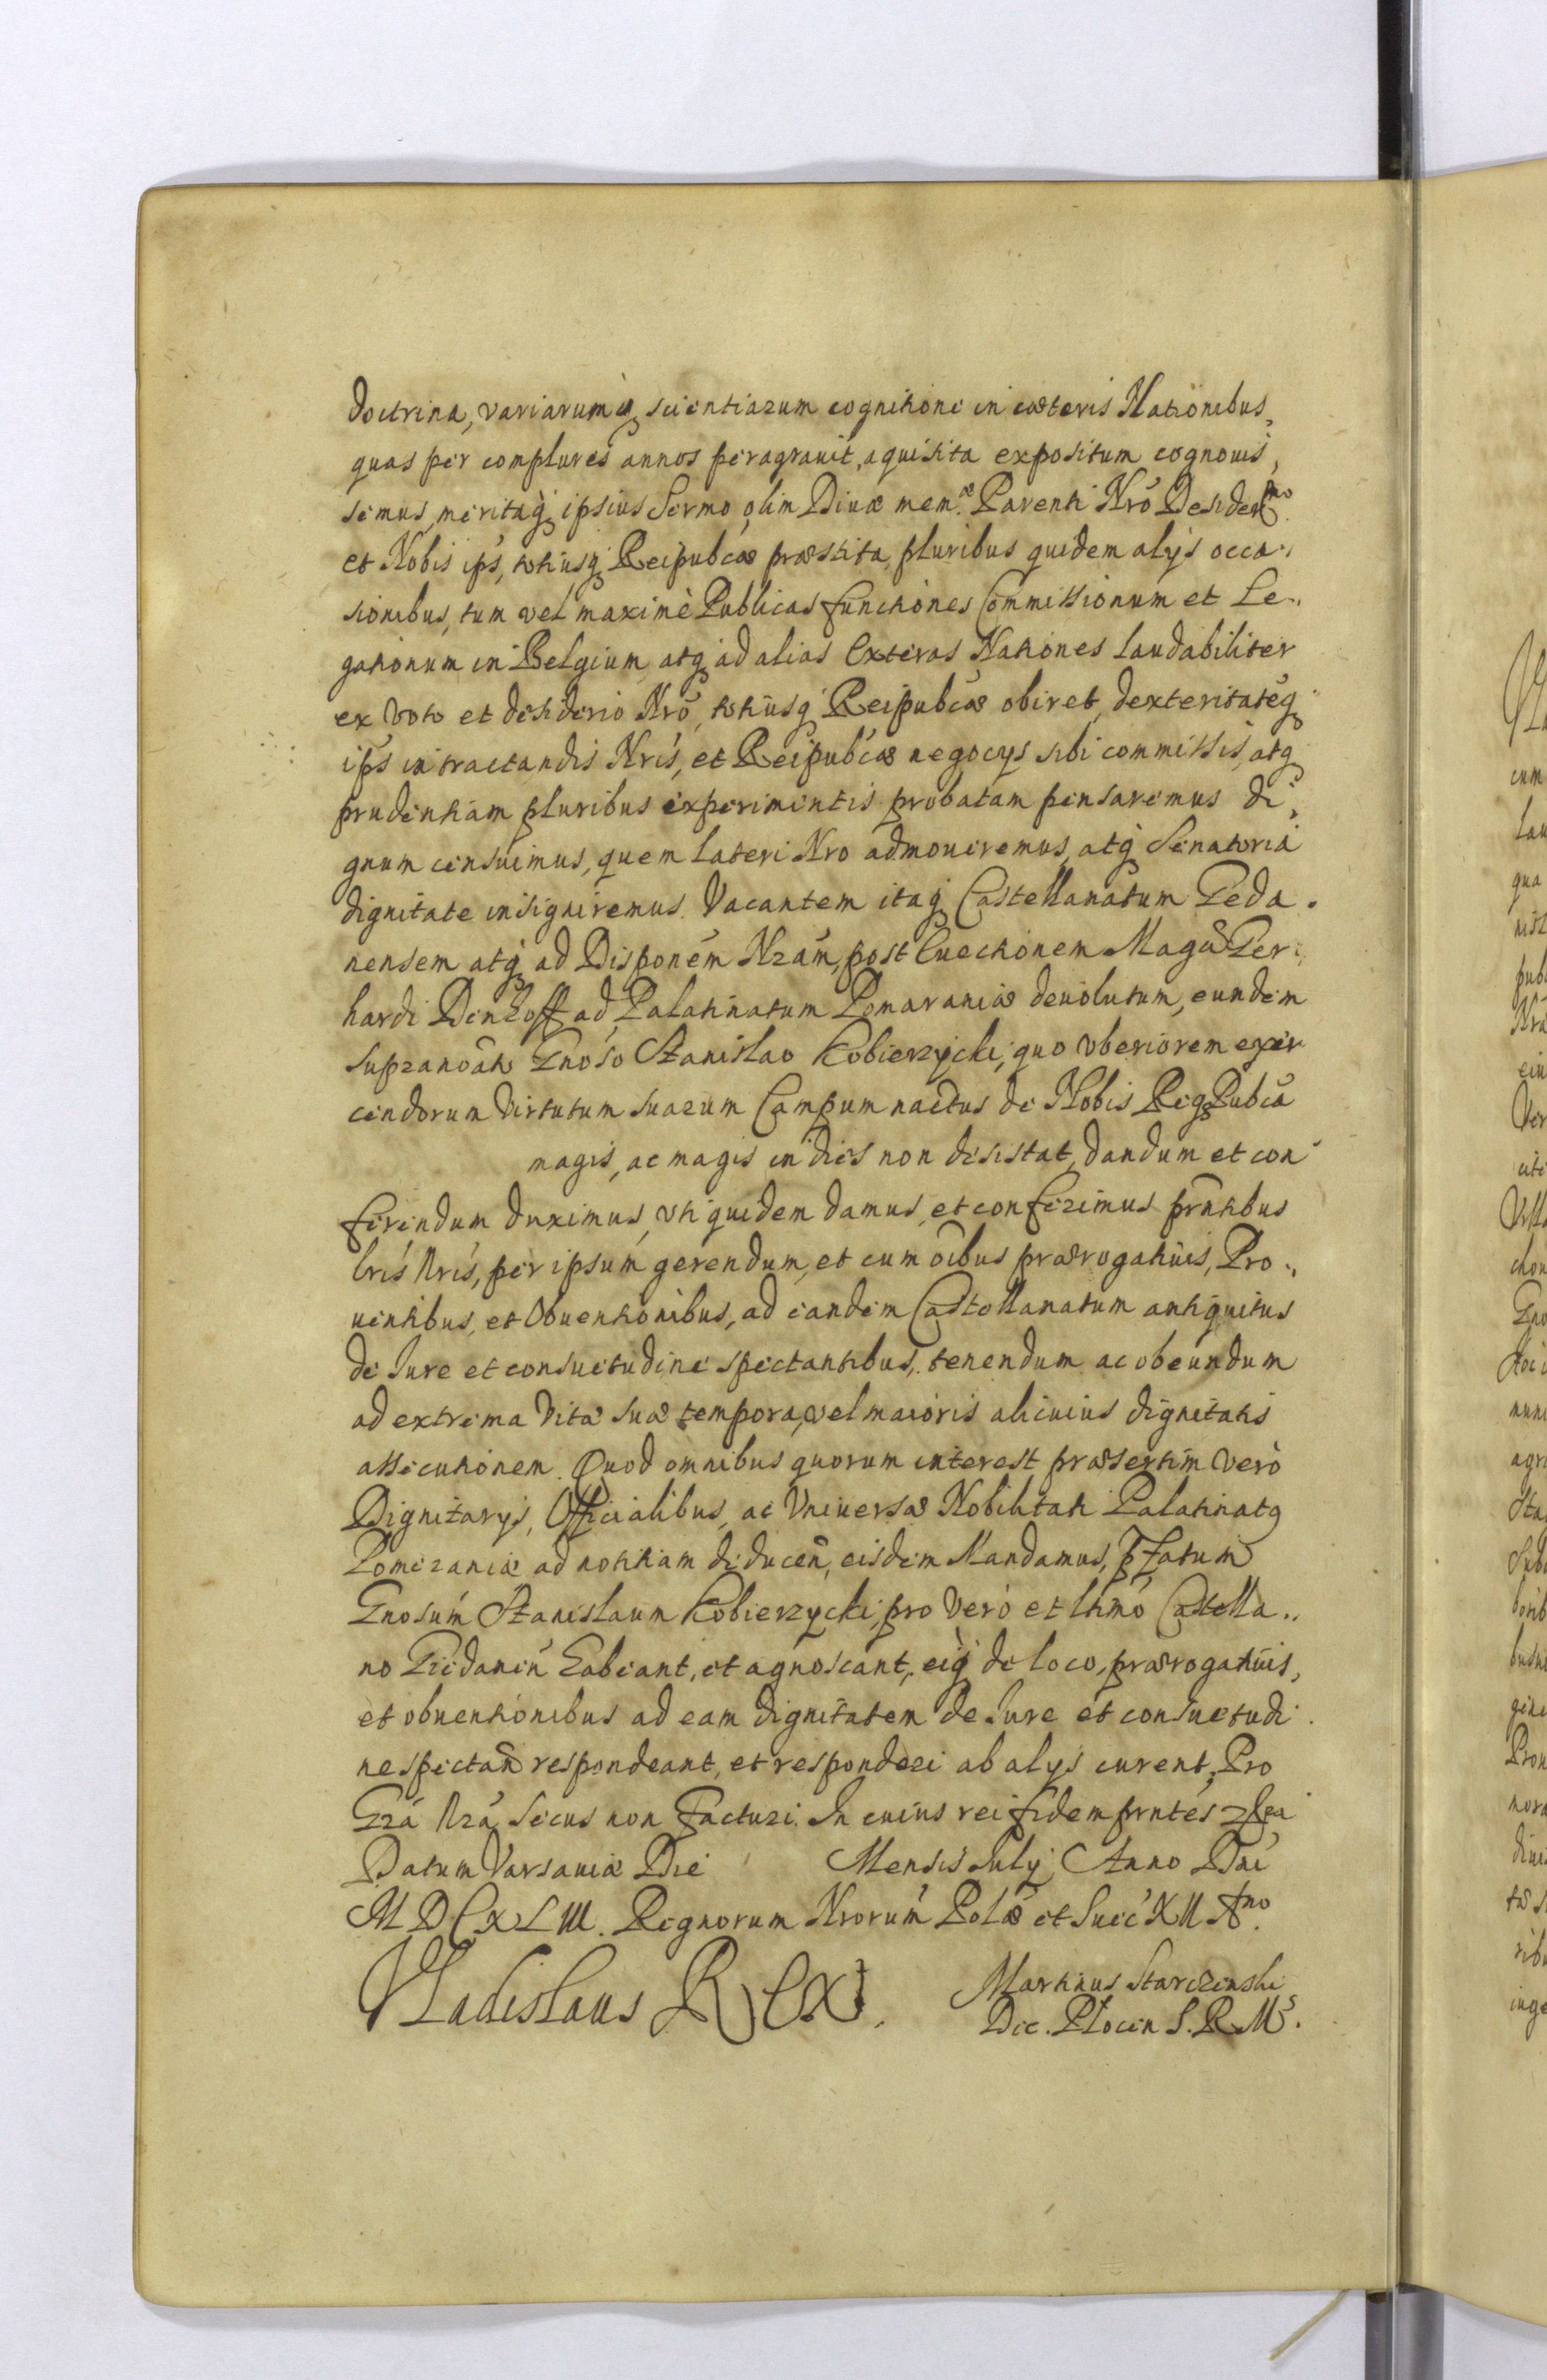 doctrina, variarumq̀ꝫ scientiarum cognitione in cæteris Nationibus,
quas per complures annos peragrauit, aquisita expositum cognouis,
semus, meritaq̀ꝫ ipsius Sermo olim Diuæ mem.æ Parenti Nrō Desiderᵐᵒ
et Nobis ips̄, totiusqꝫ Reipubcæ præstita, pluribus quidem alijs occa„
sionibus, tum vel maximè Publicas functiones Commissionum et Le„
gationum in Belgium atqꝫ ad alias Exteras Nationes laudabiliter
ex voto et desiderio Nrō, totiusqꝫ Reipubcæ obiret, dexteritatēqꝫ
ips̄ in tractandis Nris, et Reipubcæ negocijs sibi commissis, atqꝫ
prudentiam pluribus experimentis probatam pensaremus di„
gnum censuimus, quem lateri Nro admoueremus, atqꝫ Senatoria
dignitate insigniremus. Vacantem itaqꝫ Castellanatum Geda„
nensem atqꝫ ad Disponem̄ Nram̄, post Euectionem Magci Ger„
hardi Denhoff ad Palatinatum Pomaraniæ deuolutum, eundem
supranōāto Gnoso Stanislao Kobierzycki, quo vberiorem exer
cendorum Virtutum suarum Campum nactus de Nobis Reqꝫ Pubcā
magis, ac magis in dies non desistat, dandum et con
ferendum duximus, vti quidem damus, et conferimus prn̄tibus
lris̄ Nris̄, per ipsum gerendum, et cum oībus prærogatiuis, Pro„
uentibus, et Obuentionibus, ad eandem Castellanatum antiquitus
de Iure et consuetudine spectantibus, tenendum ac obeundum
ad extrema Vitæ suæ tempora, vel maioris alicuius dignitatis
assecutionem. Quod omnibus quorum interest præsertim verò
Dignitarijs, Officialibus, ac Vniversæ Nobilitati Palatinatꝰ
Pomeraniæ ad notitiam deducen̄, eisdem Mandamus, pfatum
Gnosum Stanislaum Kobierzycki, pro vero et ltimo Castella„
no Giedanen̄ habeant, et agnoscant, eiqꝫ de loco, prærogatiuis,
et obuentionibus ad eam dignitatem de Iure et consuetudi
ne spectan̄ respondeant, et responderi ab alijs curent, Pro
Gra Nra, secus non facturi. In cuius rei fidem prntes
Datum Varsauiæ Die Mensis Iulij Anno Dni
M D C X L III. Regnorum Nrorum Polæ et Suec XII Aⁿᵒ.
Vladislaus Rex.
Martinus Starczenski
Dec. Plocen S. R. Mˢ.